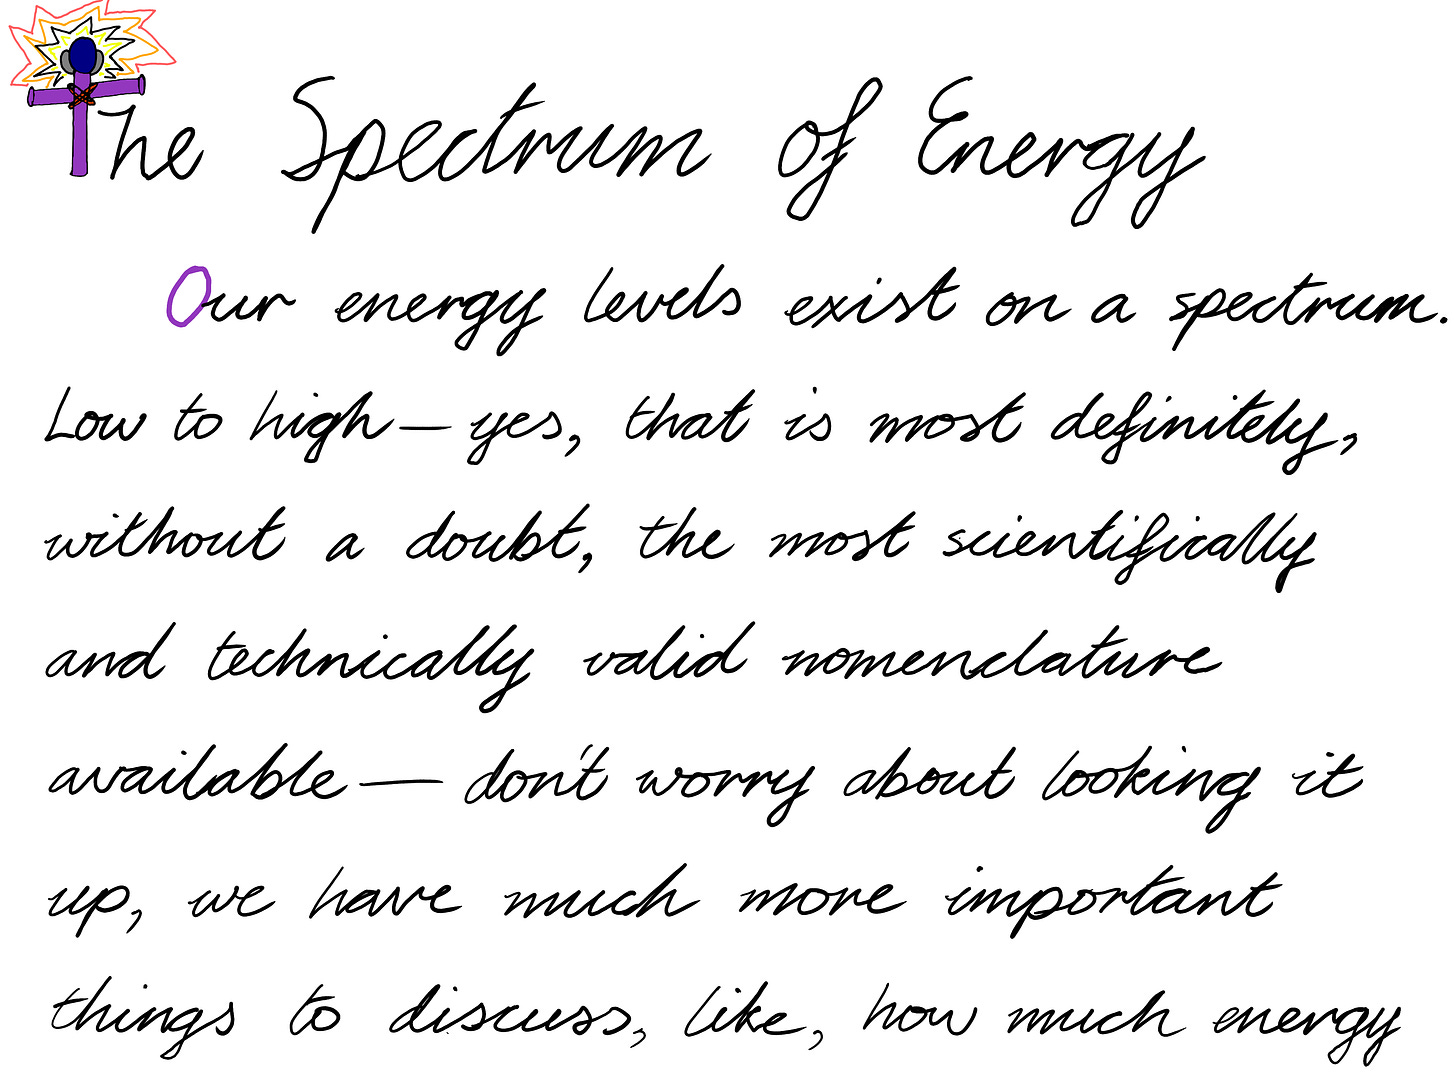 The Spectrum of Energy
Our energy levels exist on a spectrum.
Low to high — yes, that is most definitely,
without a doubt, the most scientifically
and technically valid nomenclature
available — don't worry about looking it
up, we have much more important
things to discuss, like, how much energy